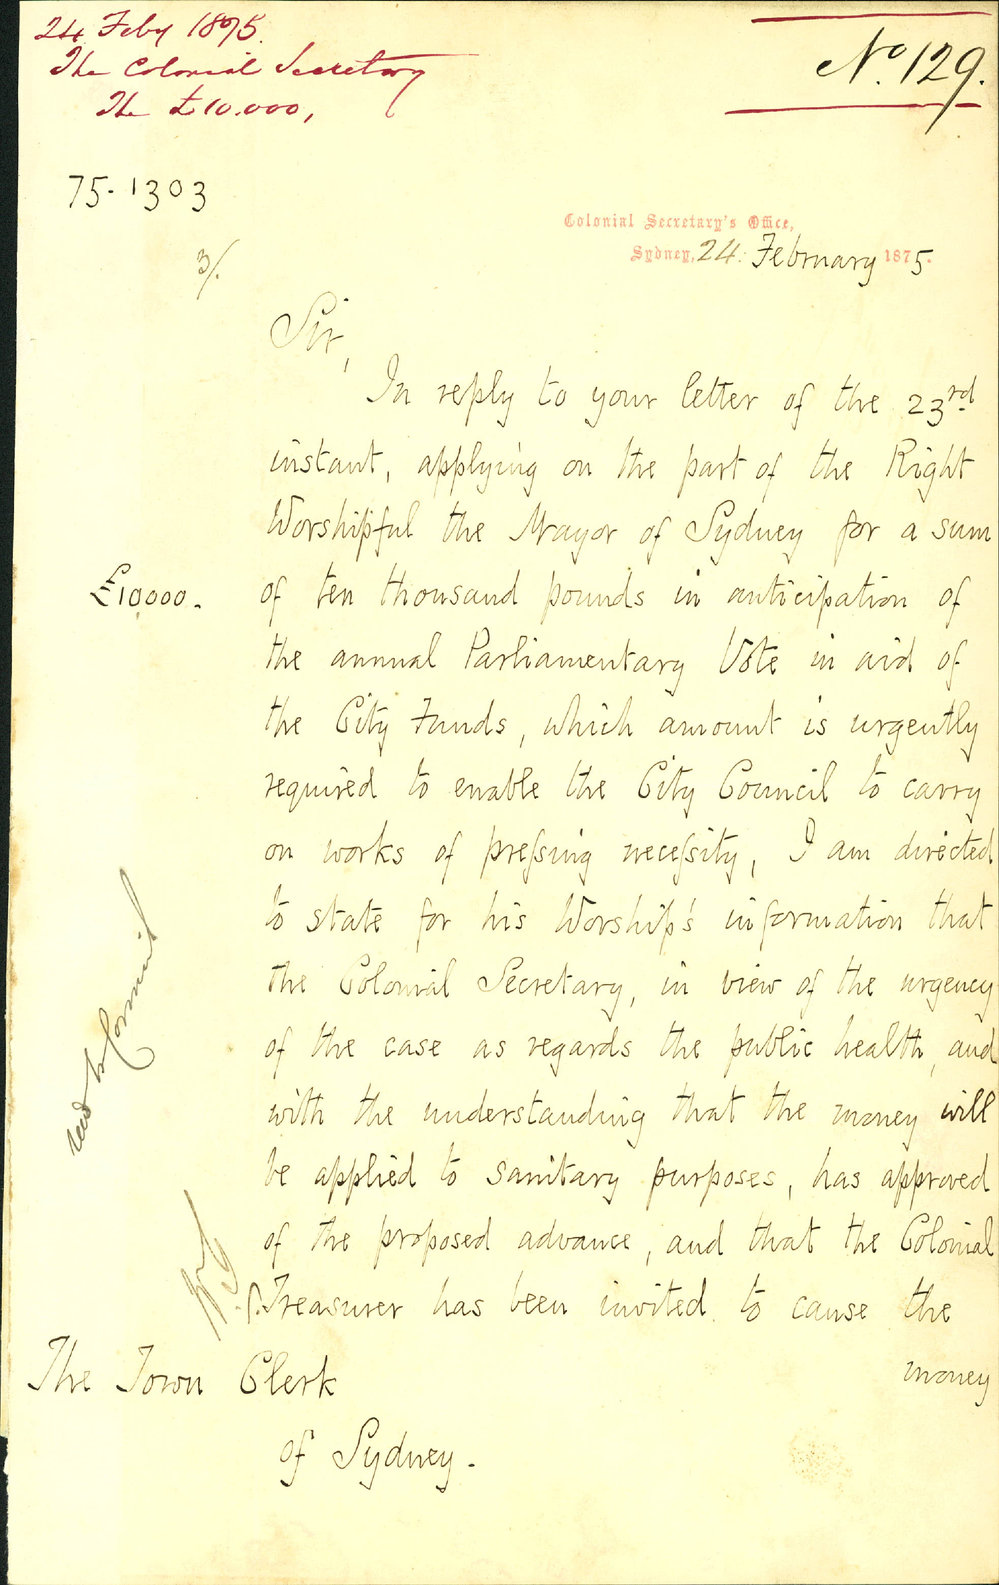 24 Feby 1875.
The Colonial Secretary
The £10.000,
No. 129.
75-1303
3/.
Colonial Secretary's Office,
Sydney, 24. February 1875.
Sir,
In reply to your letter of the 23rd
instant, applying on the part of the Right
Worshipful the Mayor of Sydney for a sum
£10,000.
of ten thousand pounds in anticipation of
the annual Parliamentary Vote in aid of
the City Funds, which amount is urgently
required to enable the City Council to carry
on works of preſsing neceſsity, I am directed
to state for his Worship's information that
the Colonial Secretary, in view of the urgency
of the case as regards the public health, and
with the understanding that the money will
be applied to sanitary purposes, has approved
of the proposed advance, and that the Colonial
Treasurer has been invited to cause the
money
The Town Clerk
of Sydney.